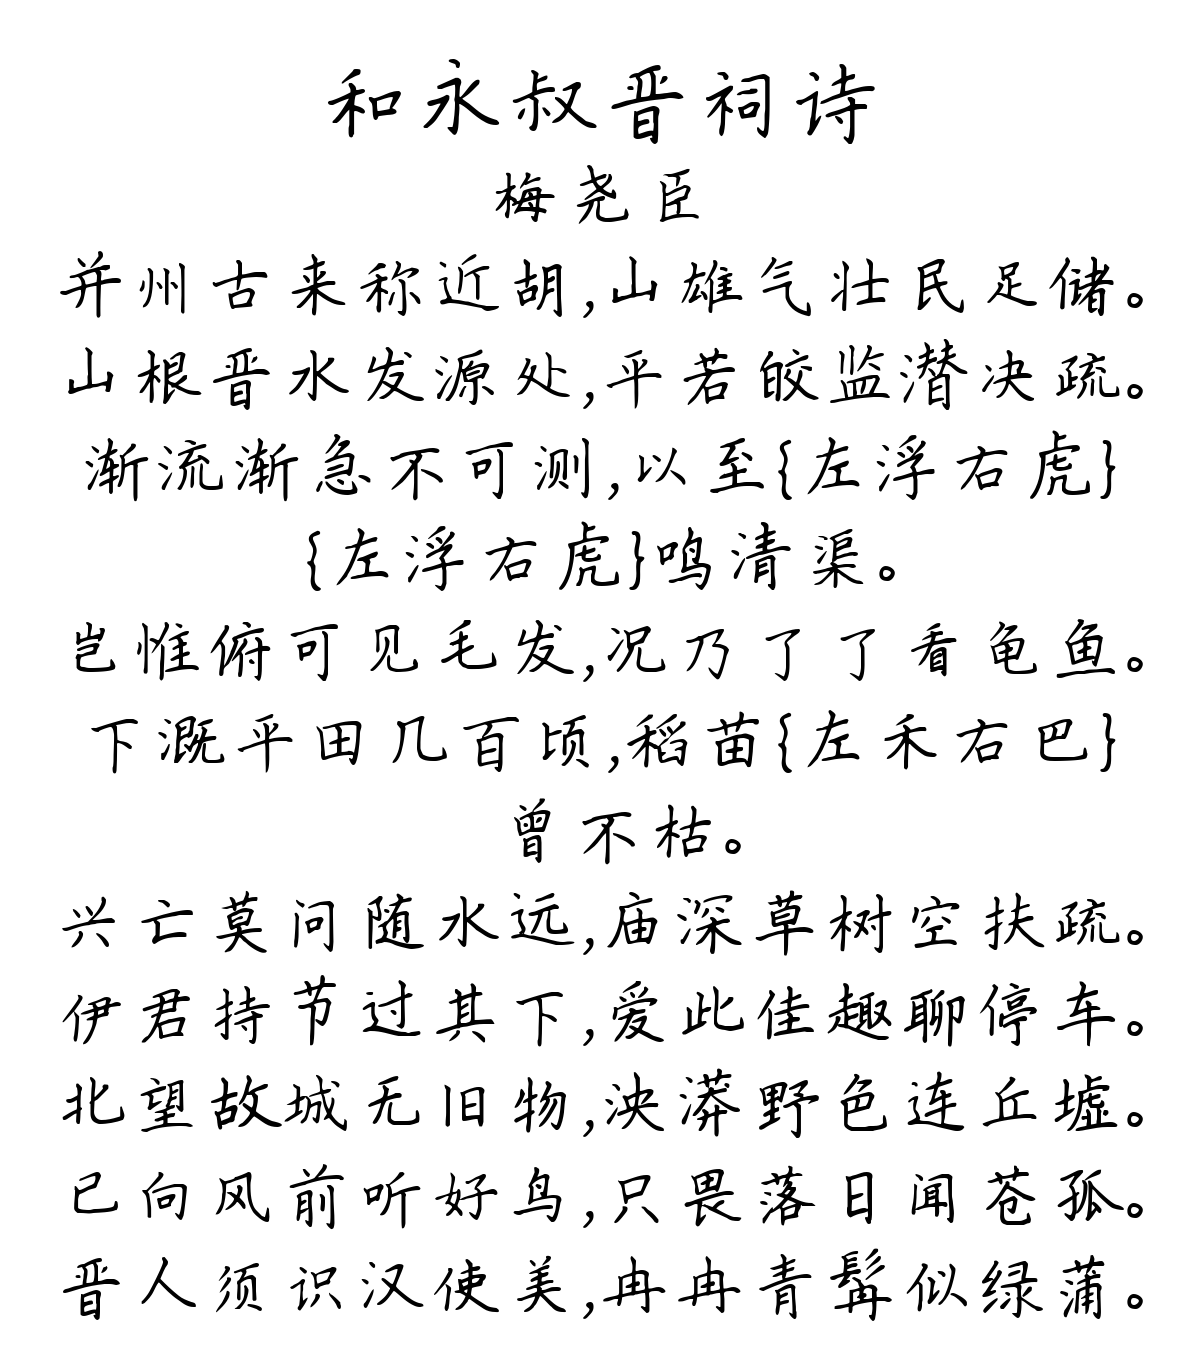 和永叔晋祠诗
梅尧臣
并州古来称近胡,山雄气壮民足储。
山根晋水发源处,平若皎监潜决疏。
渐流渐急不可测,以至{左浮右虎}
{左浮右虎}鸣清渠。
岂惟俯可见毛发,况乃了了看龟鱼。
下溉平田几百顷,稻苗{左禾右巴}
曾不枯。
兴亡莫问随水远,庙深草树空扶疏。
伊君持节过其下,爱此佳趣聊停车。
北望故城无旧物,泱漭野色连丘墟。
已向风前听好鸟,只畏落日闻苍孤。
晋人须识汉使美,冉冉青髯似绿蒲。